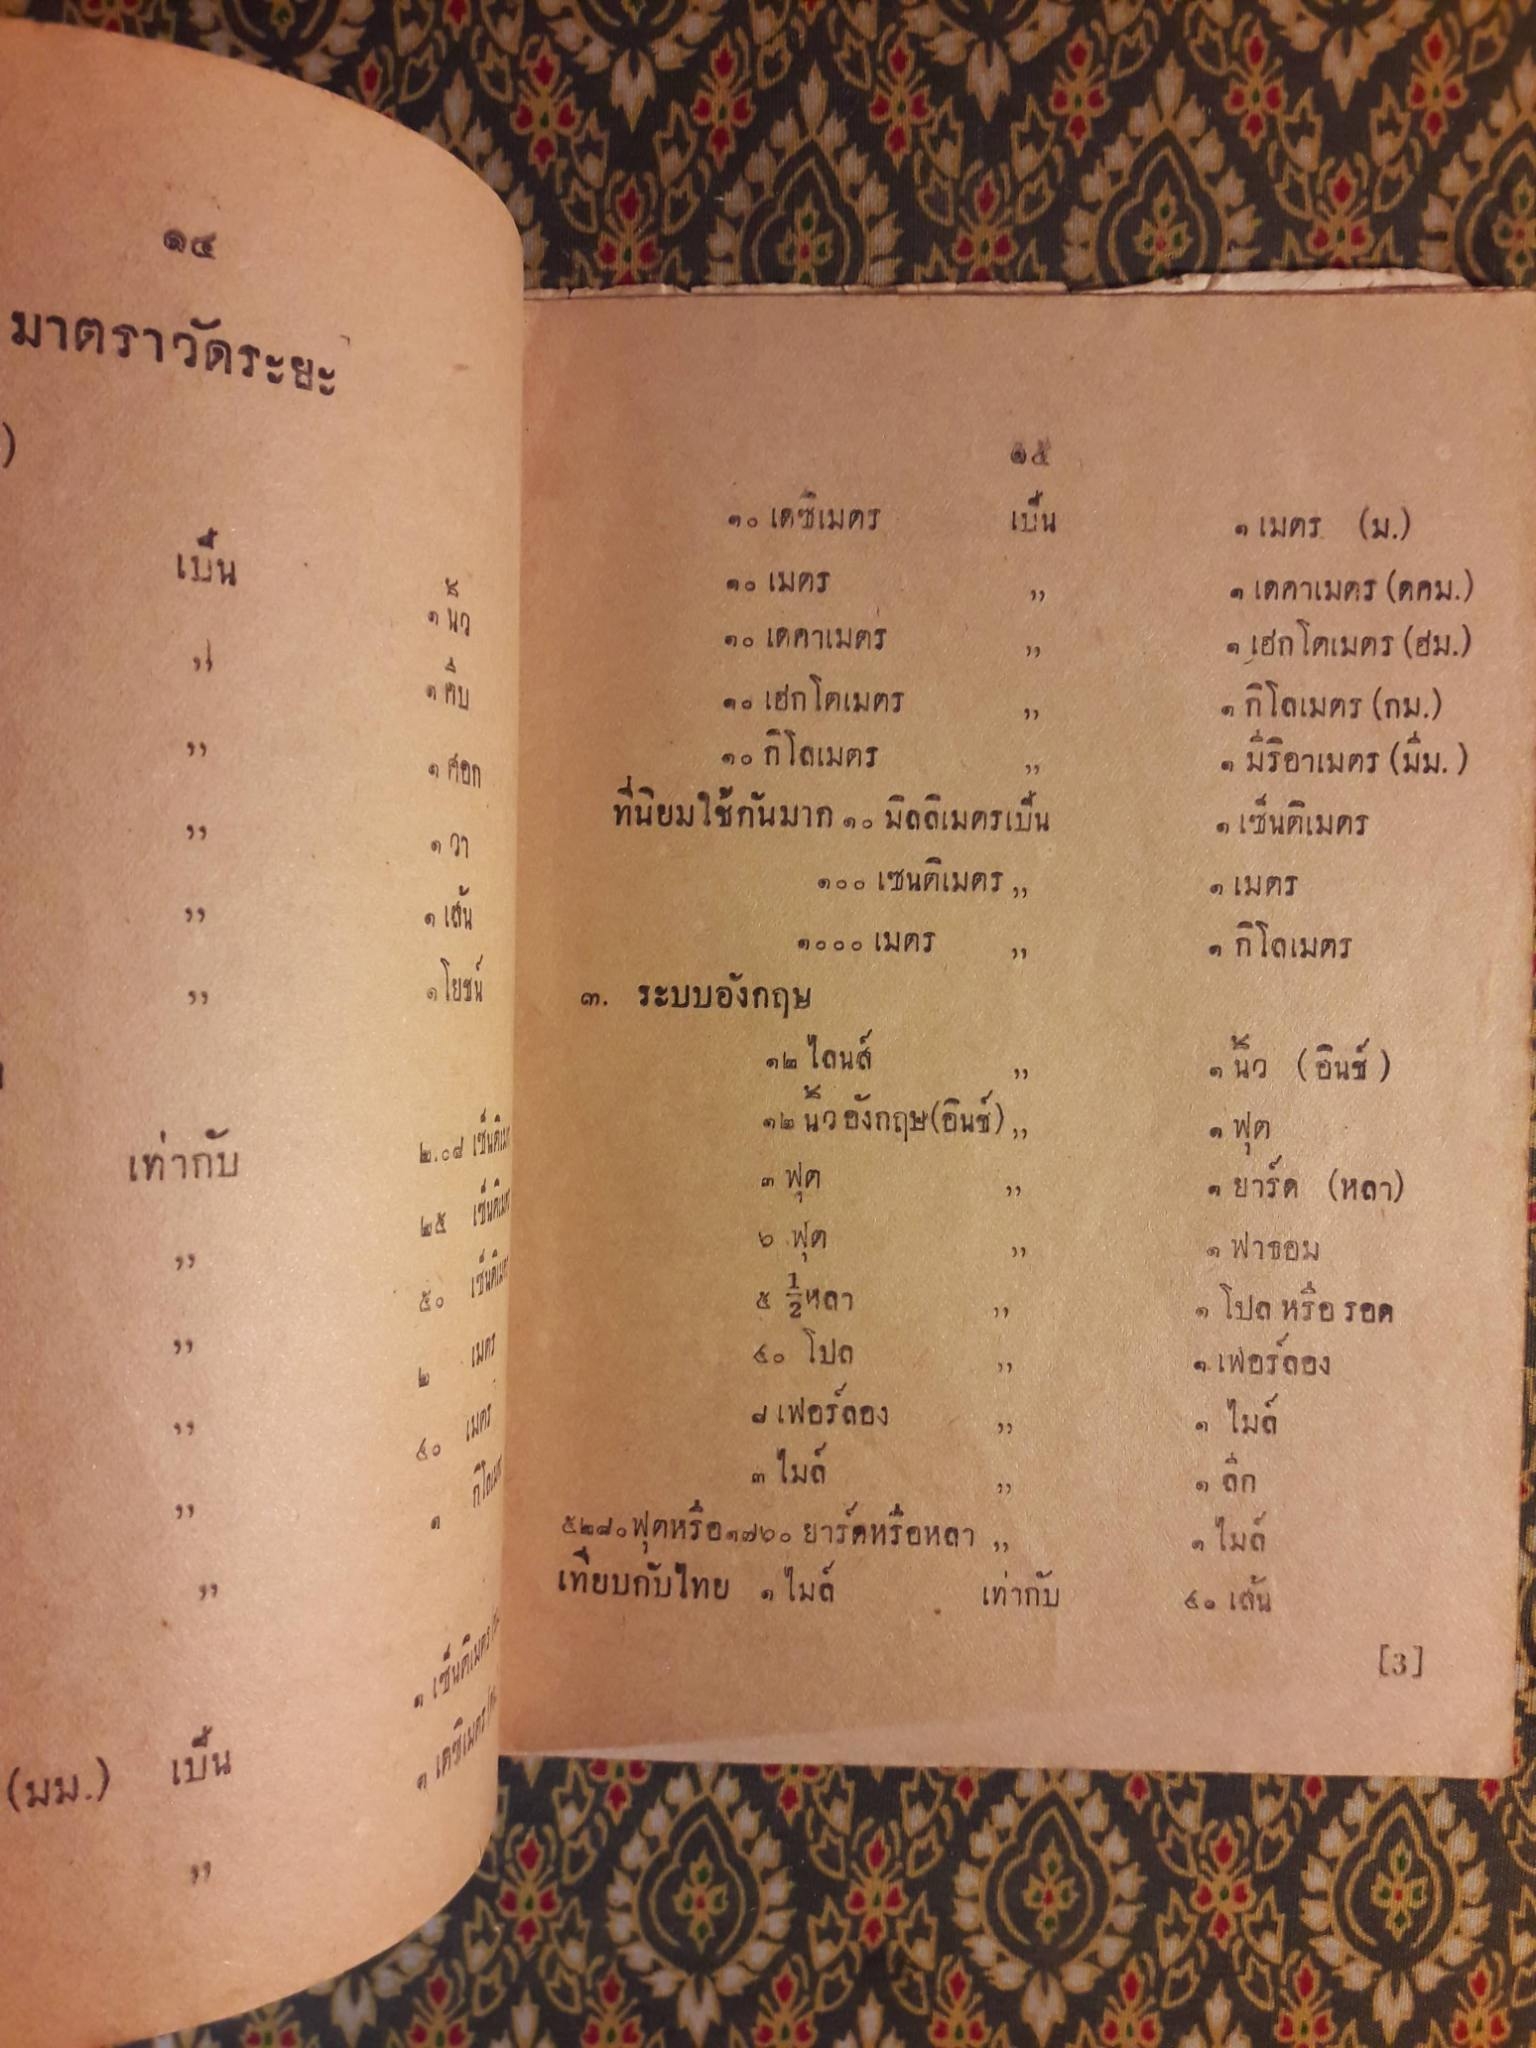 ๑๔
มาตราวัดระยะ
)
เป็น ๑ นิ้ว
" ๑ คืบ
" ๑ ศอก
" ๑ วา
" ๑ เส้น
" ๑ โยชน์
เท่ากับ ๒.๐๘ เซ็นติเม
" ๒๕ เซ็นติเม
" ๕๐ เซ็นติเม
" ๒ เมตร
" ๔๐ เมตร
" ๑ กิโลเม
"
๑ เซ็นติเมตร
(มม.) เป็น ๑ เดซิเมตร
"
๑๕
๑๐ เดซิเมตร เป็น ๑ เมตร (ม.)
๑๐ เมตร " ๑ เดคาเมตร (ดคม.)
๑๐ เดคาเมตร " ๑ เฮกโตเมตร (ฮม.)
๑๐ เฮกโตเมตร " ๑ กิโลเมตร (กม.)
๑๐ กิโลเมตร " ๑ มิริอาเมตร (มิม.)
ที่นิยมใช้กันมาก ๑๐ มิลลิเมตรเป็น ๑ เซ็นติเมตร
๑๐๐ เซนติเมตร " ๑ เมตร
๑๐๐๐ เมตร " ๑ กิโลเมตร
๓. ระบบอังกฤษ
๑๒ ไลนส์ " ๑ นิ้ว (อินช์)
๑๒ นิ้วอังกฤษ(อินช์) " ๑ ฟุต
๓ ฟุต " ๑ ยาร์ด (หลา)
๖ ฟุต " ๑ ฟาธอม
๕ 1/2 หลา " ๑ โปล หรือ รอด
๔๐ โปล " ๑ เฟอร์ลอง
๘ เฟอร์ลอง " ๑ ไมล์
๓ ไมล์ " ๑ ลีก
๕๒๘๐ ฟุตหรือ ๑๗๖๐ ยาร์ดหรือหลา " ๑ ไมล์
เทียบกับไทย ๑ ไมล์ เท่ากับ ๔๐ เส้น
[3]